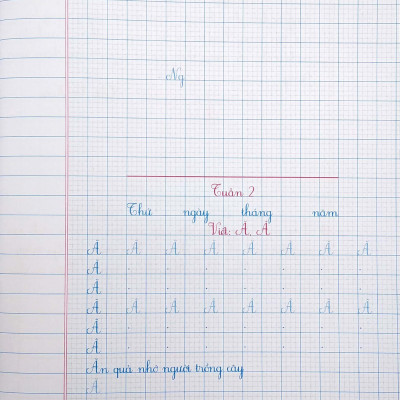 Ng
Tuần 2
Thứ ngày tháng năm
Viết: Ă, Â
Ă Ă Ă Ă Ă Ă Ă Ă
Ă
Ă
Â Â Â Â Â Â Â Â
Â
Â
Ăn quả nhớ người trồng cây
Ă